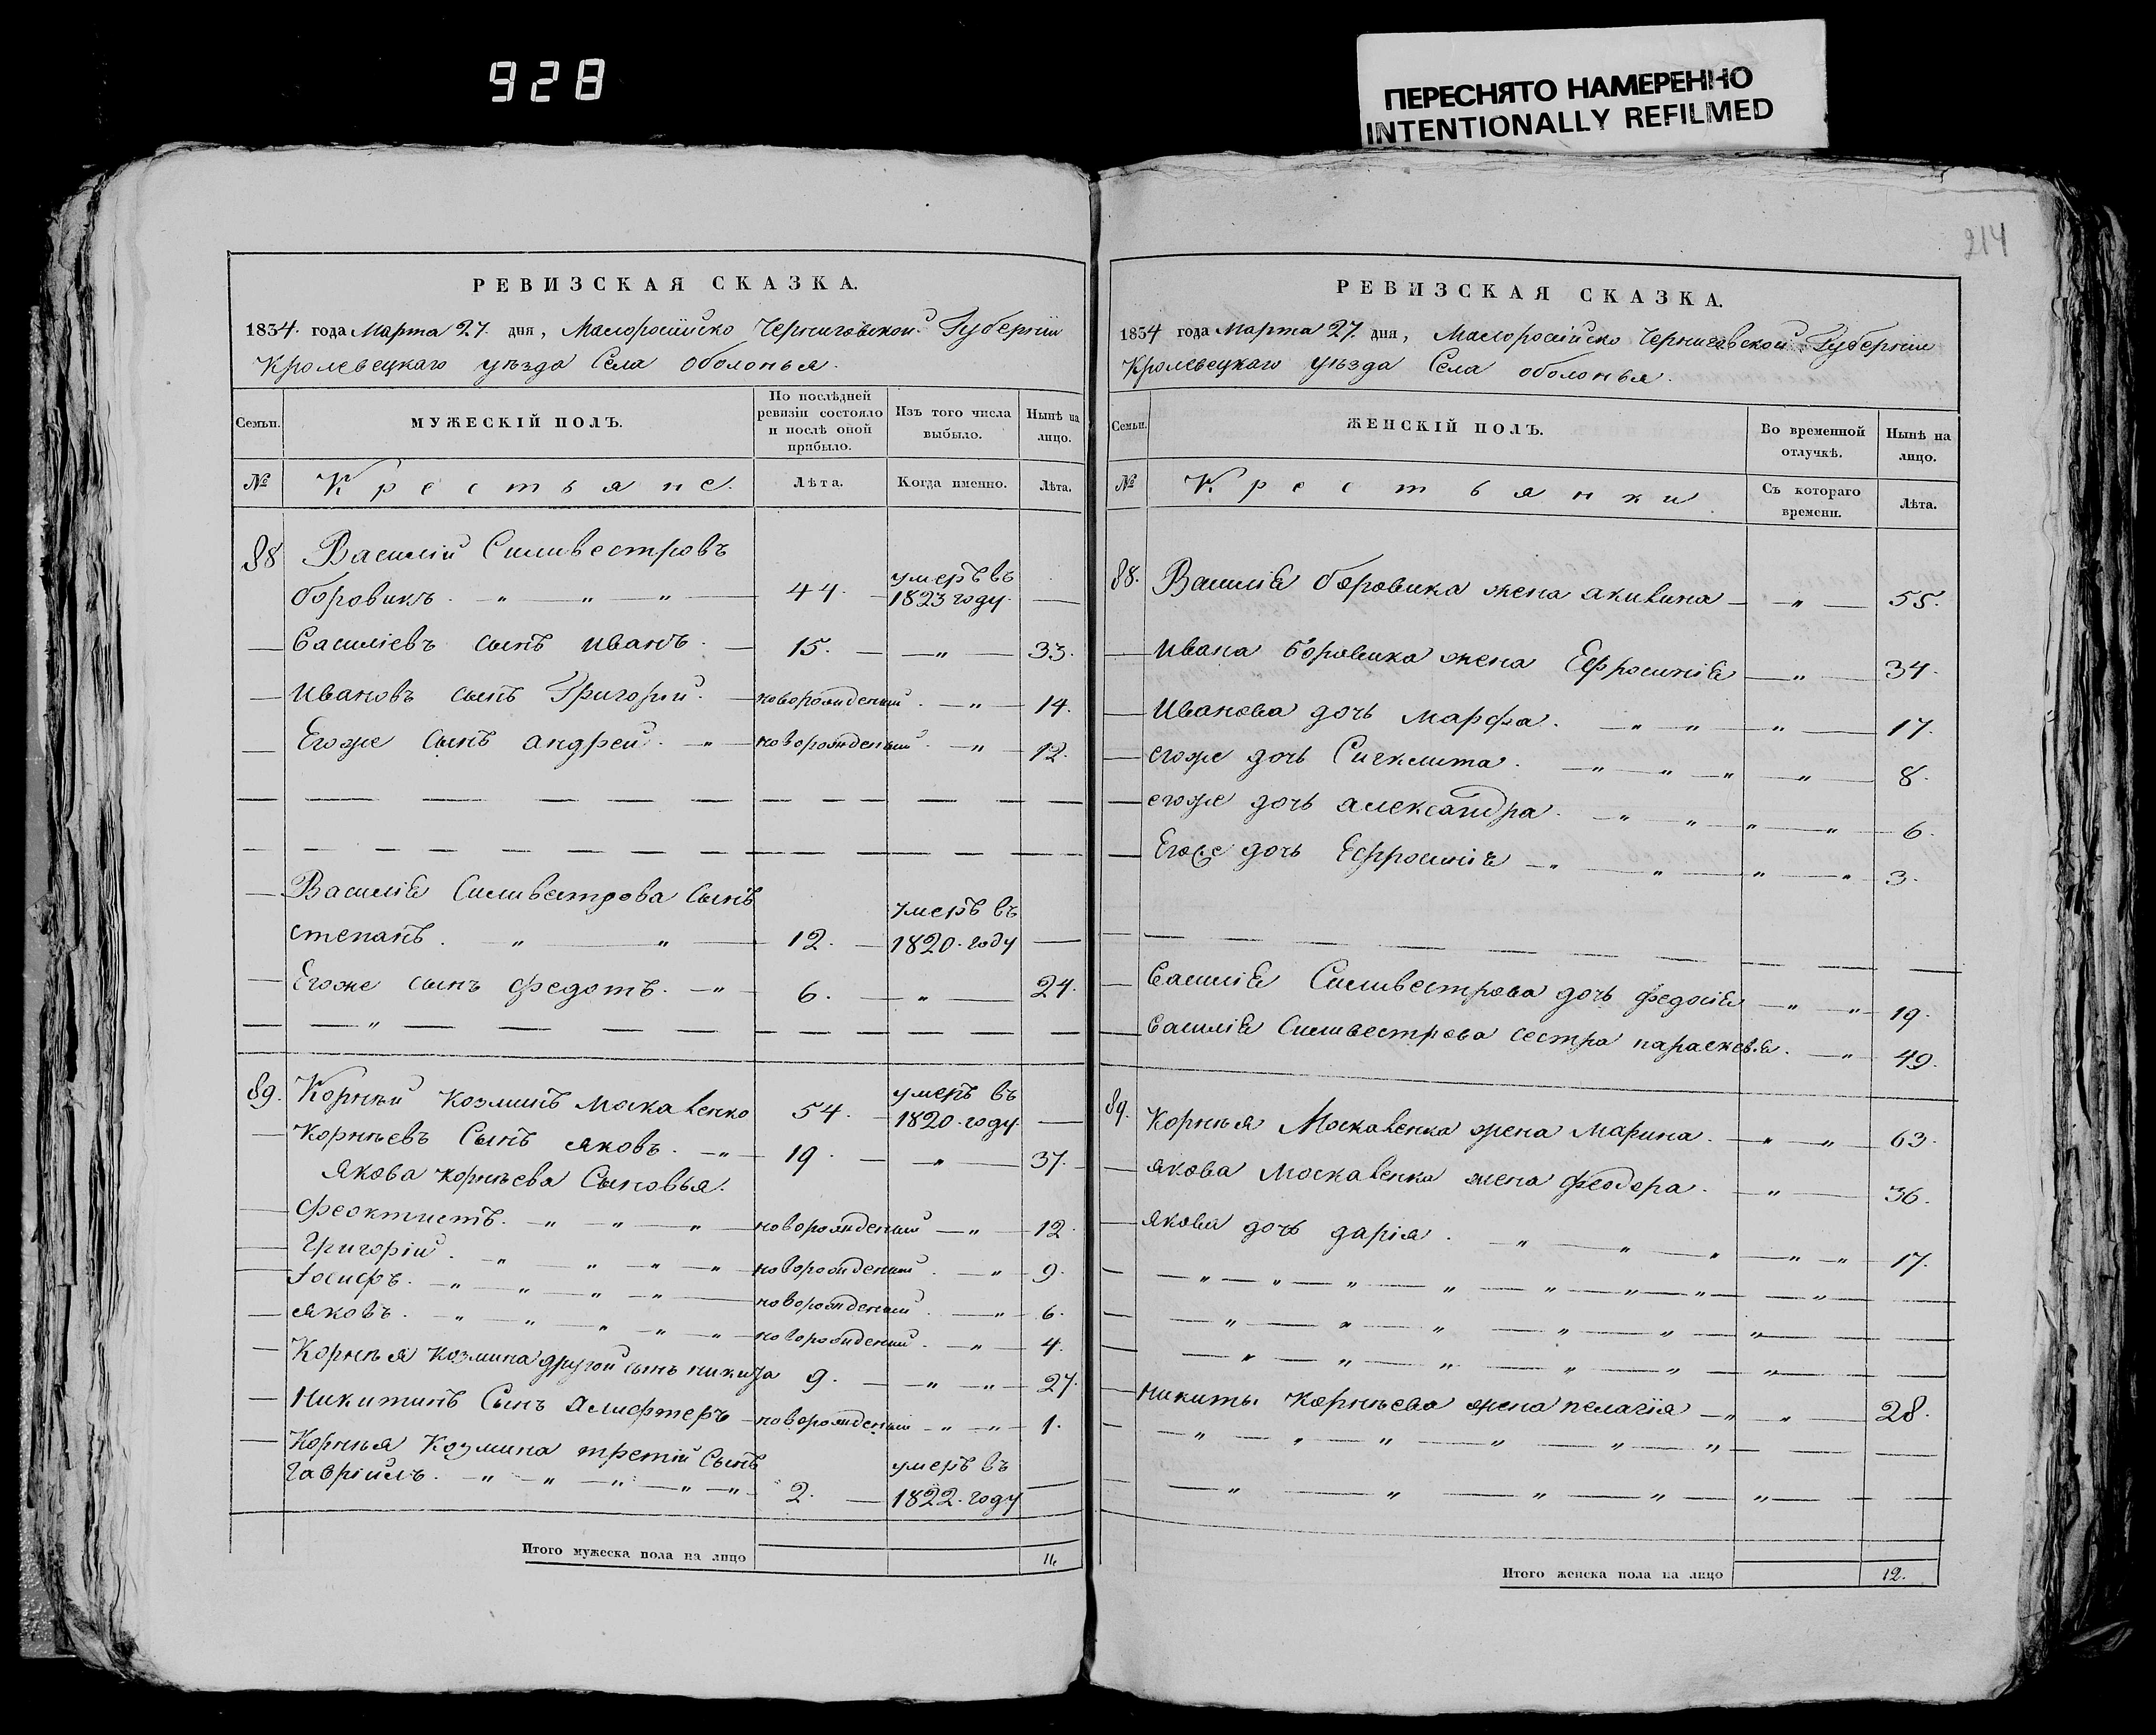 928
ПЕРЕСНЯТО НАМЕРЕННО
INTENTIONALLY REFILMED
214
РЕВИЗСКАЯ СКАЗКА.
1834. года Марта 27. дня, Малоросiйско Черниговской Губернiи
Кролевецкаго уѣзда Села оболонья.
Семьи.
МУЖЕСКIЙ ПОЛЪ.
По послѣдней ревизiи состояло и послѣ оной прибыло.
Изъ того числа выбыло.
Нынѣ на лицо.
№
Крестьяне.
Лѣта.
Когда именно.
Лѣта.
88 Василiй Силивестровъ
боровикъ. 44. умеръ въ 1823 году.
Василiевъ сынъ иванъ. 15. 33.
ивановъ сынъ Григорiй. новорожденый. 14.
Егоже сынъ андрей. новорожденый. 12.
Василiя Силивестрова сынъ
степанъ. 12. умеръ въ 1820. году
Егоже сынъ федотъ. 6. 24.
89. Корнѣй козминъ москавенко 54. умеръ въ 1820. году.
Корнѣевъ Сынъ яковъ. 19. 37.
якова корнѣева Сыновья.
феоктистъ. новорожденый 12.
Григорiй. новорожденый. 9.
Iосифъ. новорожденый. 6.
яковъ. новорожденый. 4.
Корнѣя козмина другой сынъ никита 9. 27.
Никитинъ Сынъ Алифтеръ новорожденый 1.
Корнѣя Козмина третiй Сынъ
гаврiилъ. 2. умеръ въ 1822. году
Итого мужеска пола на лицо 11
РЕВИЗСКАЯ СКАЗКА.
1834 года Марта 27. дня, Малоросiйско Черниговской Губернiи
Кролевецкаго уѣзда Села оболонья.
Семьи.
ЖЕНСКIЙ ПОЛЪ.
Во временной отлучкѣ.
Нынѣ на лицо.
№
Крестьянки
Съ котораго времени.
Лѣта.
88. Василiя боровика жена акилина 55.
ивана боровика жена Ефросинiя 34.
иванова дочь марфа. 17.
егоже дочь Сигклита. 8.
егоже дочь александра. 6.
Егоже дочь Ефросинiя 3.
Василiя Силивестрова дочь федосiя 19.
Василiя Силивестрова сестра параскевiя. 49.
89. Корнѣя Москавенка жена Марина. 63.
якова москавенка жена феодора. 36.
якова дочь дарiя. 17.
никиты Корнѣева жена пелагiя 28.
Итого женска пола на лицо 12.